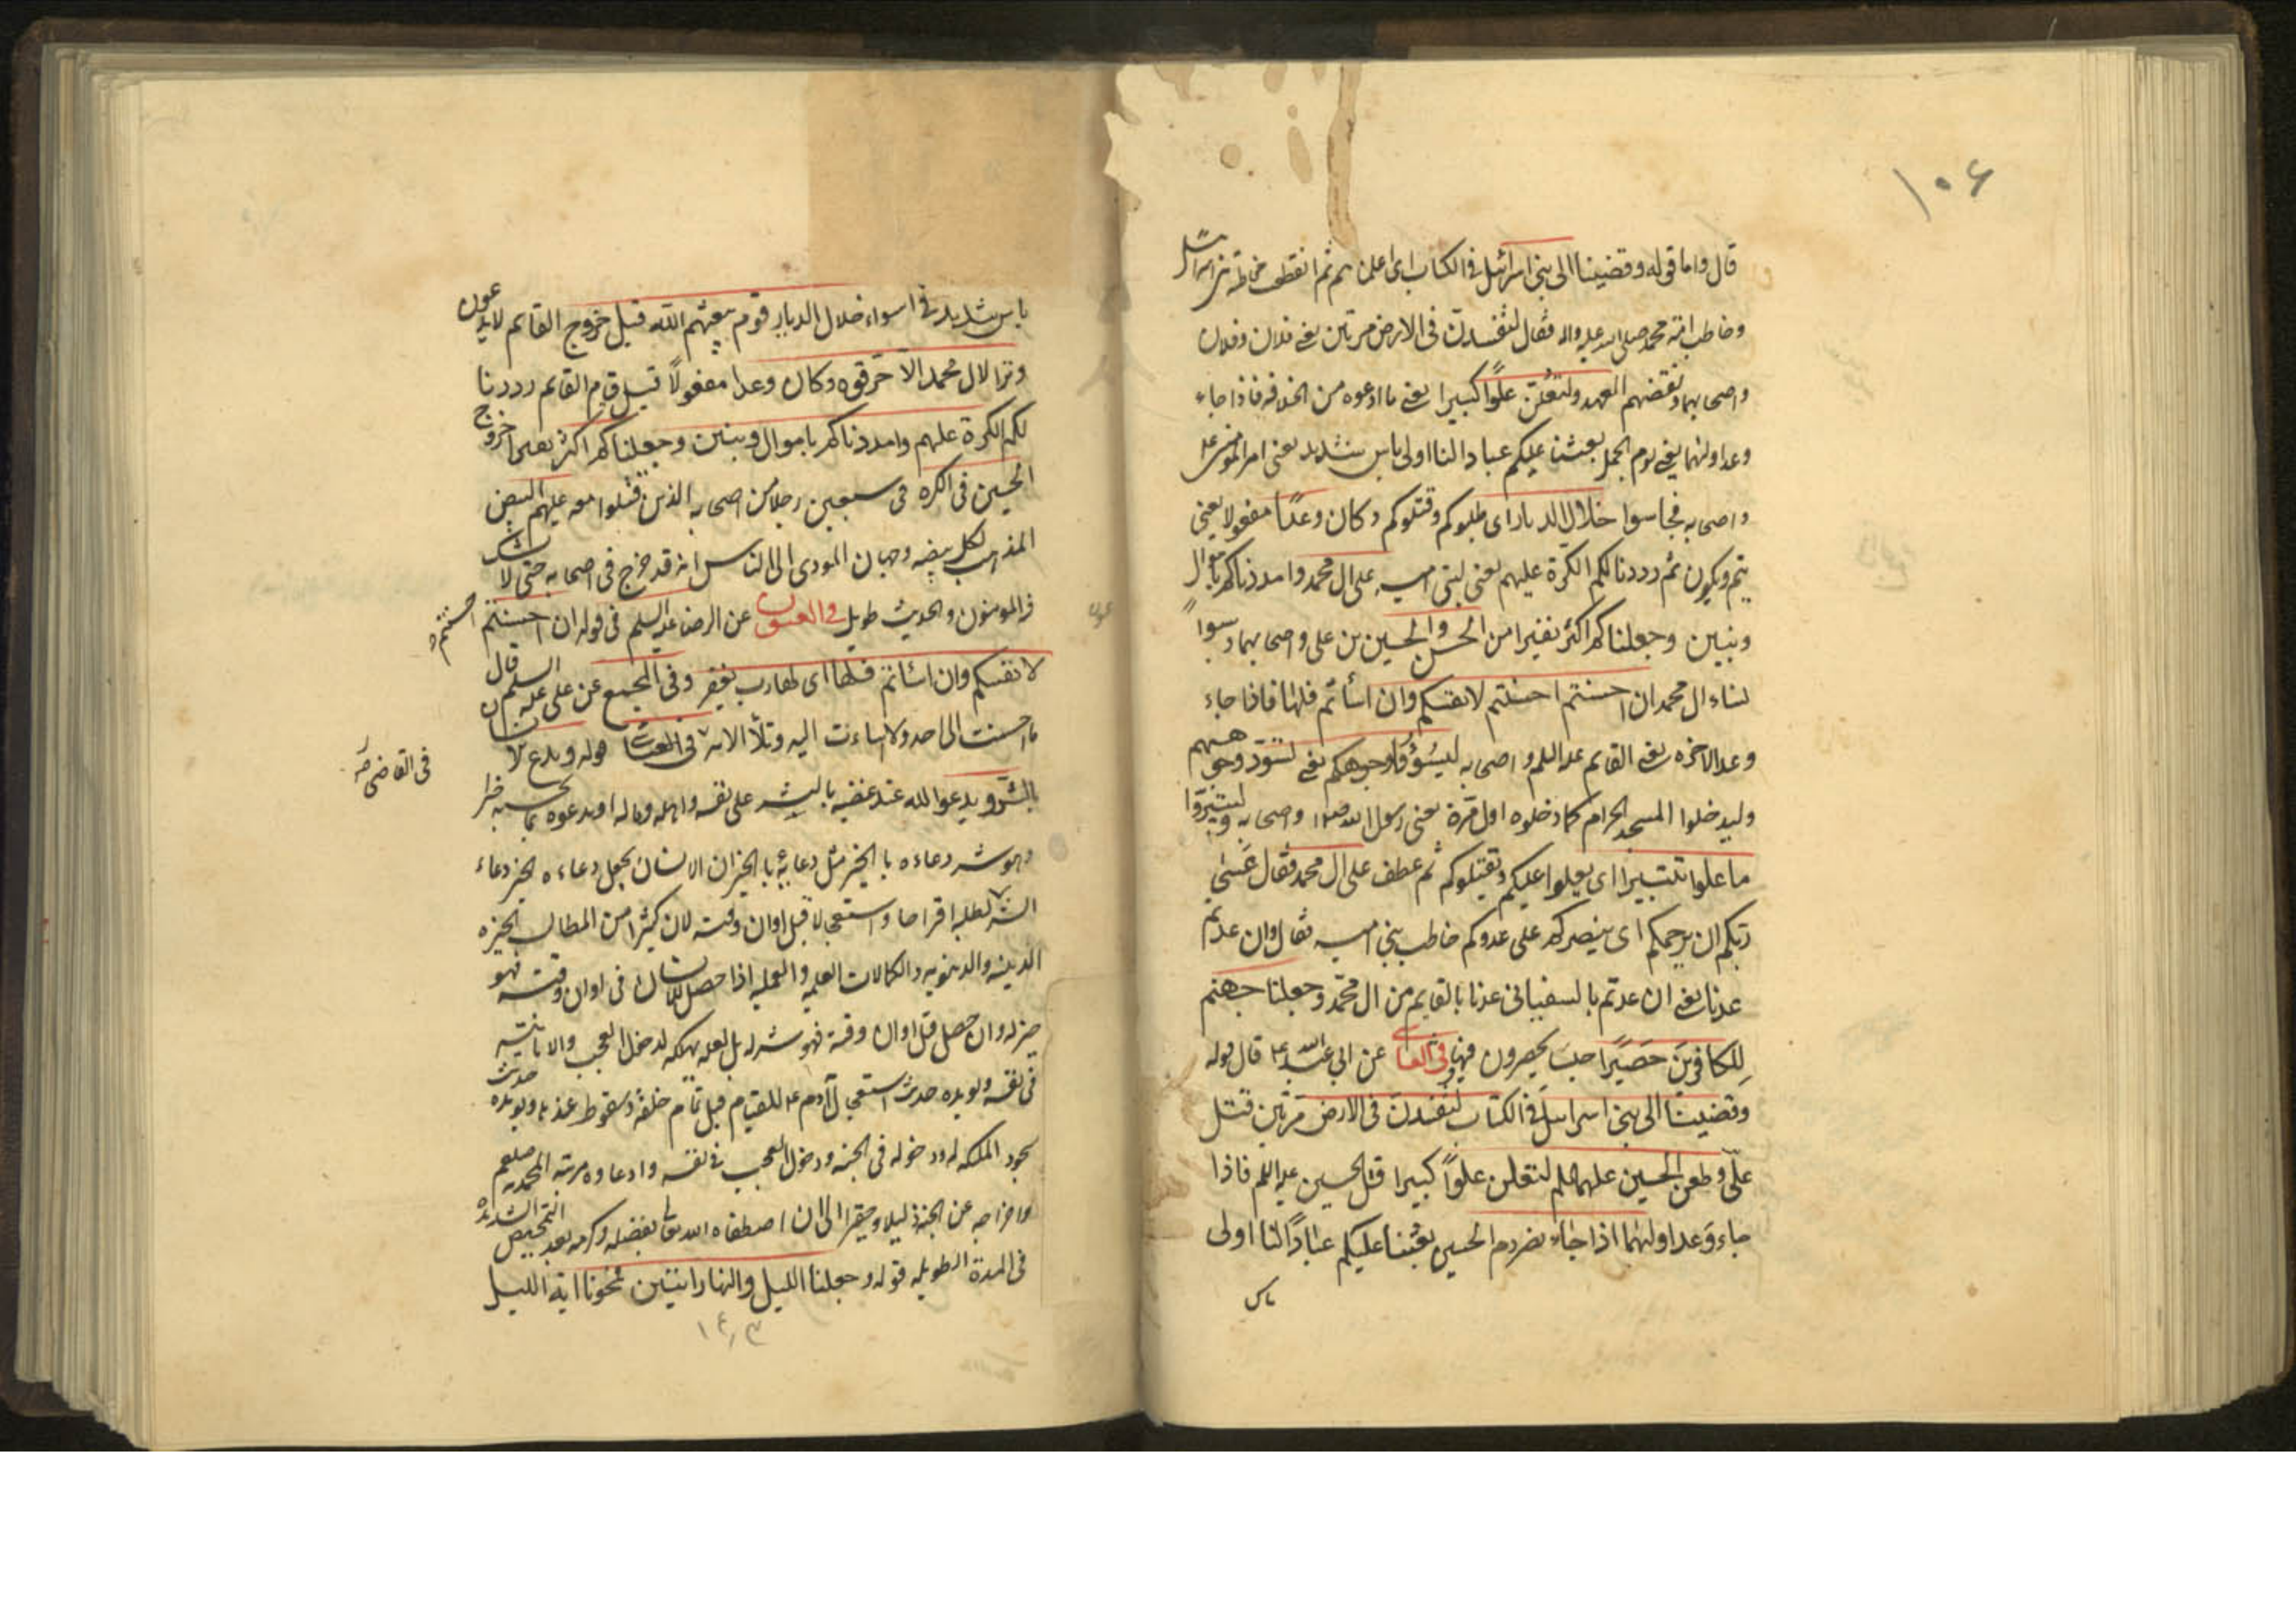 ١٠٦
قال واما قوله وقضينا الى بنى اسرائيل فى الكتاب اى اعلمناهم ثم انقطعت مخاطبة بنى اسرائيل
وخاطب امة محمد صلى الله عليه واله فقال لتفسدن فى الارض مرتين يعنى فلان وفلان
واصحابهما ونقضهم العهد ولتعلن علوا كبيرا يعنى ما ادعوه من الخلافة فاذا جاء
وعد اوليهما يعنى يوم الجمل بعثنا عليكم عبادا لنا اولى باس شديد يعنى امير المؤمنين ع
واصحابه فجاسوا خلال الديار اى طلبوكم وقتلوكم وكان وعدا مفعولا يعنى
يتم ويكون ثم رددنا لكم الكرة عليهم يعنى لبنى اميه على ال محمد وامددناكم باموال
وبنين وجعلناكم اكثر نفيرا من الحسن والحسين بن على واصحابهما وسبوا
نساء ال محمد ان احسنتم احسنتم لانفسكم وان اسأتم فلها فاذا جاء
وعد الاخره يعنى القايم عليه السلم واصحابه ليسوؤا وجوهكم يعنى تسود وجوههم
وليدخلوا المسجد الحرام كما دخلوه اول مرة يعنى رسول الله ص واصحابه وليتبروا
ما علوا تتبيرا اى يعلوا عليكم ويقتلوكم ثم عطف على ال محمد فقال عسى
ربكم ان يرحمكم اى ينصركم على عدوكم خاطب بنى اميه فقال وان عدتم
عدنا يعنى ان عدتم بالسفيانى عدنا بالقايم من ال محمد وجعلنا جهنم
للكافرين حصيرا حبسا يحصرون فيها وفى عن ابى عبد الله ع قال قوله
وقضينا الى بنى اسرائيل فى الكتاب لتفسدن فى الارض مرتين قتل
على وطعن الحسين عليهما السلم لتعلن علوا كبيرا قتل الحسين عليه السلم فاذا
جاء وعد اوليهما اذا جاء نصر دم الحسين بعثنا عليكم عبادا لنا اولى
باس
باس شديد فجاسوا خلال الديار قوم يبعثهم الله قبل خروج القايم لا يدعون
وترا لال محمد الا حرقوه وكان وعدا مفعولا قبل قيام القايم رددنا
لكم الكرة عليهم وامددناكم باموال وبنين وجعلناكم اكثر نفيرا خروج
الحسين فى الكره فى سبعين رجلا من اصحابه الذين قتلوا معه عليهم البيض
المذهب لكل بيضه وجهان المودى الى الناس انه قد خرج فى اصحابه حتى لا يشك
فيه المومنون والحديث طويل وفى العيون عن الرضا عليه السلم فى قوله ان احسنتم احسنتم
لانفسكم وان اسأتم فلها اى فلها رب يغفر وفى المجمع عن على عليه السلم قال
ما احسنت الى احد ولا اساءت اليه وتلا الايه فى قوله ويدع الانسان
فى القاضى
بالشر ويدعوا الله عند غضبه بالشر على نفسه واهله وماله او يدعوه بما يحسبه خيرا
وهو شر دعاءه بالخير مثل دعائه بالخير ان الانسان يجعل دعاءه الخير دعاء
الشر لطلبه اقتراحا واستعجالا قبل اوان وقته لان كثيرا من المطالب الخيره
الدينيه والدنيويه والكمالات العلميه والعمليه اذا حصل للانسان فى اوان وقته فهو
خير له وان حصل قبل اوان وقته فهو شر له بل لعله يهلكه لدخول العجب والانانيه
فى نفسه ويويده حديث استعجال آدم ع للقيام قبل تمام خلقه وسقوط عنده ويويده حديث
سجود الملئكه له ودخوله فى الجنه ودخول العجب فى نفسه وادعاوه مرتبه المحمديه صلعم
واخراجه عن الجنة ذليلا وحقيرا الى ان اصطفاه الله تعالى بفضله وكرمه بعد التمحيص الشديده
فى المدة الطويله قوله وجعلنا الليل والنهار ايتين فمحونا اية الليل